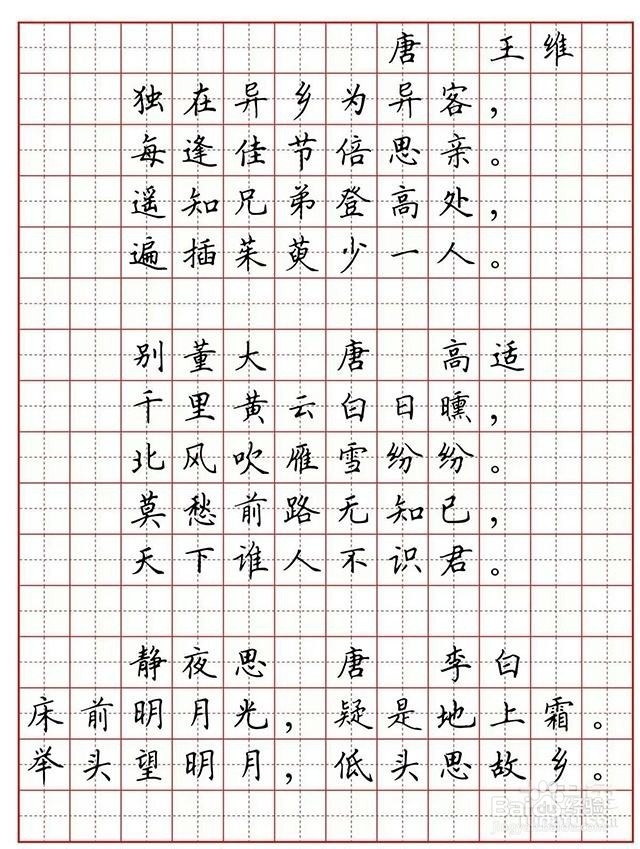 唐 王维
独在异乡为异客，
每逢佳节倍思亲。
遥知兄弟登高处，
遍插茱萸少一人。
别董大 唐 高适
千里黄云白日曛，
北风吹雁雪纷纷。
莫愁前路无知已，
天下谁人不识君。
静夜思 唐 李白
床前明月光，疑是地上霜。
举头望明月，低头思故乡。
Baidu经验